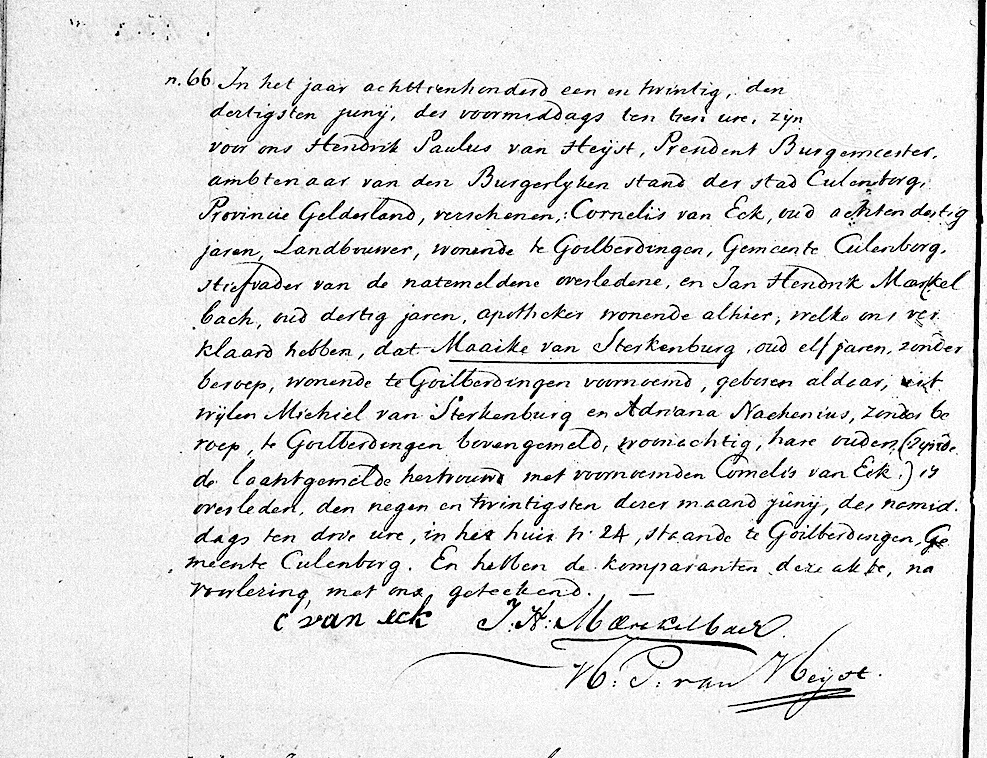 n. 66 In het jaar achttienhonderd een en twintig, den
dertigsten junij, des voormiddags ten tien ure, zijn
voor ons Hendrik Paulus van Heijst, President Burgemeester,
ambtenaar van den Burgerlyken stand der stad Culenborg,
Provincie Gelderland, verschenen,: Cornelis van Eck, oud achtendertig
jaren, Landbouwer, wonende te Goilberdingen, Gemeente Culenborg,
stiefvader van de natemeldene overledene, en Jan Hendrik Maerkel
bach, oud dertig jaren, apotheker wonende alhier, welke ons ver
klaard hebben, dat Maaike van Sterkenburg, oud elf jaren, zonder
beroep, wonende te Goilberdingen voornoemd, geboren aldaar, uit
wijlen Michiel van Sterkenburg en Adriana Nachenius, zonder be
roep, te Goilberdingen bovengemeld, woonachtig, hare ouders, (zynde
de laatstgemelde hertrouwd met voornoemden Cornelis van Eck:) is
overleden, den negen en twintigsten dezer maand junij, des namid
dags ten drie ure, in het huis n. 24, staande te Goilberdingen, Ge
meente Culenborg. En hebben de komparanten deze akte, na
voorlezing met ons geteekend.
C van eck J. H. Maerckelbach
H. P. van Heijst.